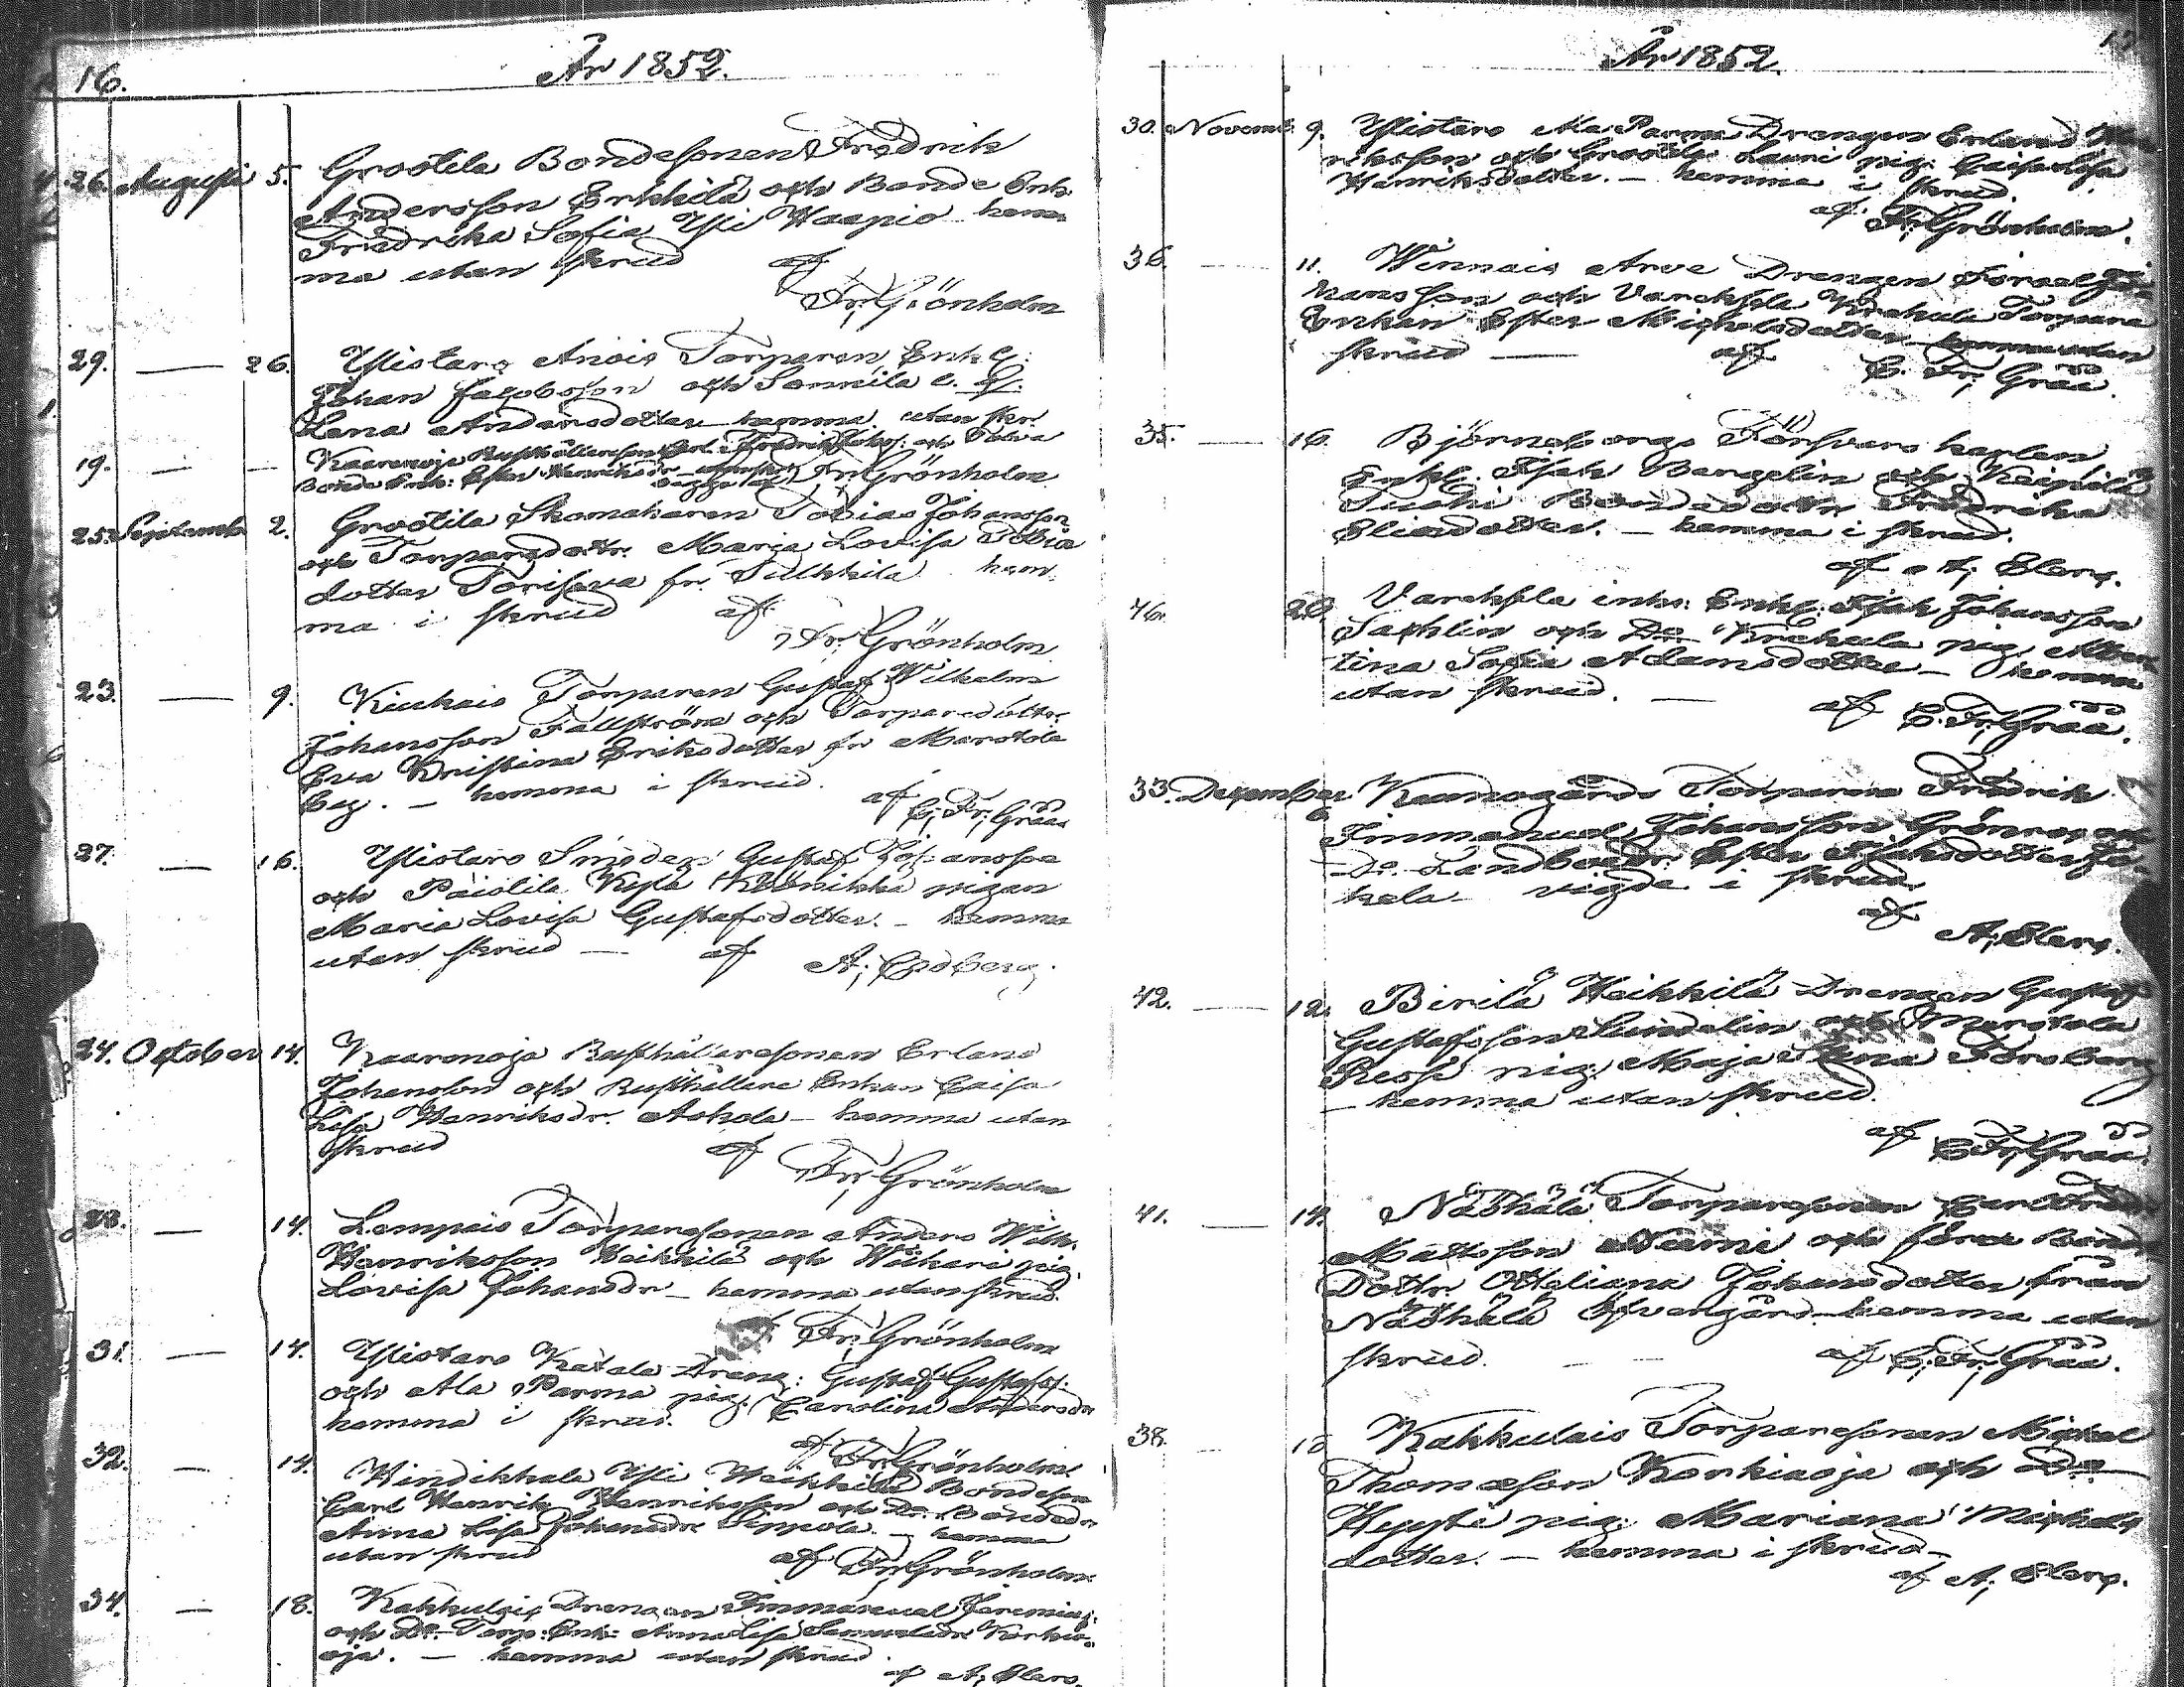 16.
År 1852.
26. Augusti 5. Grootila Bondesonen Fredrik
Andersson Erkkilä och Bonde Enk.
Fredrika Sofia Yli Haapio hem-
ma utan skrud af
Fr. Grönholm
29. — 26. Ylistaro Anois Torparen Enkl.
Johan Jacobsson och Sonnila
Lena Andersdotter hemma utan skr.
19. — — Kaaronoja Rusthållareson
Bonde Enk: Ester Henriksdr Fr. Grönholm
25. Septemb. 2. Grootila Skomakaren Tobias Johansson
och Torparedottr. Maria Lovisa Tobia
dotter fr. hem-
ma i skrud af
Fr. Grönholm
23. — 9. Kiukais Torparen Gustaf Wilhelm
Johansson Fällström och Torparedottr.
Eva Kristina Eriksdotter fr Marttila
hemma i skrud.
af C. Fr. Gråå
27. — 16. Ylistaro Smeden Gustaf Johansson
och Päivlilä Kylä pigan
Maria Lovisa Gustafsdotter. – hemma
utan skrud — af A. Edberg.
24. October 14. Kaaronoja Rusthållaresonen Erland
Johansson och Rusthållare Enkan Caisa
Lisa Henriksdr. Ackola – hemma utan
skrud af
Fr. Grönholm
28. — 14. Lempois Torparesonen Anders Wilh.
Henriksson Heikkilä och pig.
Lovisa Johansdr – hemma utan skrud.
af Fr. Grönholm
31. — 14. Ylistaro Katala Dreng: Gustaf Gustafss.
och Ala Parma pig. Carolina Andersdr
hemma i skrud.
af Fr. Grönholm
32. — 14. Hindikkala Yli Heikkilä Bondeson
Carl Henrik Henriksson och Do. Bondedr
Anna Lisa Johansdr Seppola. – hemma
utan skrud af Fr. Grönholm
34. — 18. Kakkulais Drengen Immanuel Jeremias.
och Do. Torp: Enk: Anna Lisa Samuelsdr Korkia-
oja. – hemma utan skrud.
af A. Clerq.
År 1852.
30. Novemb. 9. Ylistaro Ala Parma Drengen Erland Hen
riksson och Grootila Lauri pig. Caisa Lisa
Henriksdotter. – hemma i skrud.
af Fr. Grönholm.
36. — 11. Winnais Arve Drengen Israel Jo
hansson och Vareksela Krekula Torpare
Enkan Ester Michelsdotter
skrud — af C. Fr. Gråå.
35. — 16. Björneborgs Försvars karlen
Enkl. Isak Bergelin och Keipilä
Tuohi Bondedottr Fredrika
Eliaedotter. – hemma i skrud.
af A. Clerq.
46. 28. Vareksela inhs: Enkl: Isak Johansson
Saxlin och Do. Krekula pig. Alber
tina Sofia Adamsdotter – hemma
utan skrud. — af C. Fr. Gråå.
33. December 6 Kaanogårds Torparen Fredrik
Immanuel Johansson Grönroos och
Do. Landbodr: Ester Isaksdotter
kela vigde i skrud
af
A. Clerq.
42. — 12. Birilä Heikkilä Drengen Gustaf
Gustafsson Sundelin och Marttola
Resso pig. Maja Stina Forsberg
– hemma utan skrud.
af C. Fr. Gråå.
41. — 14. Näöhälä Torparesonen Carl
Mattsson Niemi och förra Bonde
Dottr. Ottiliana Johansdotter från
Näöhälä Öfvergård – hemma utan
skrud. — af C. Fr. Gråå.
38. Kakkulais Torparesonen Michel
Thomasson Korkiaoja och Do
Heysti pig: Mariana Michels
dotter. – hemma i skrud –
af A. Clerq.